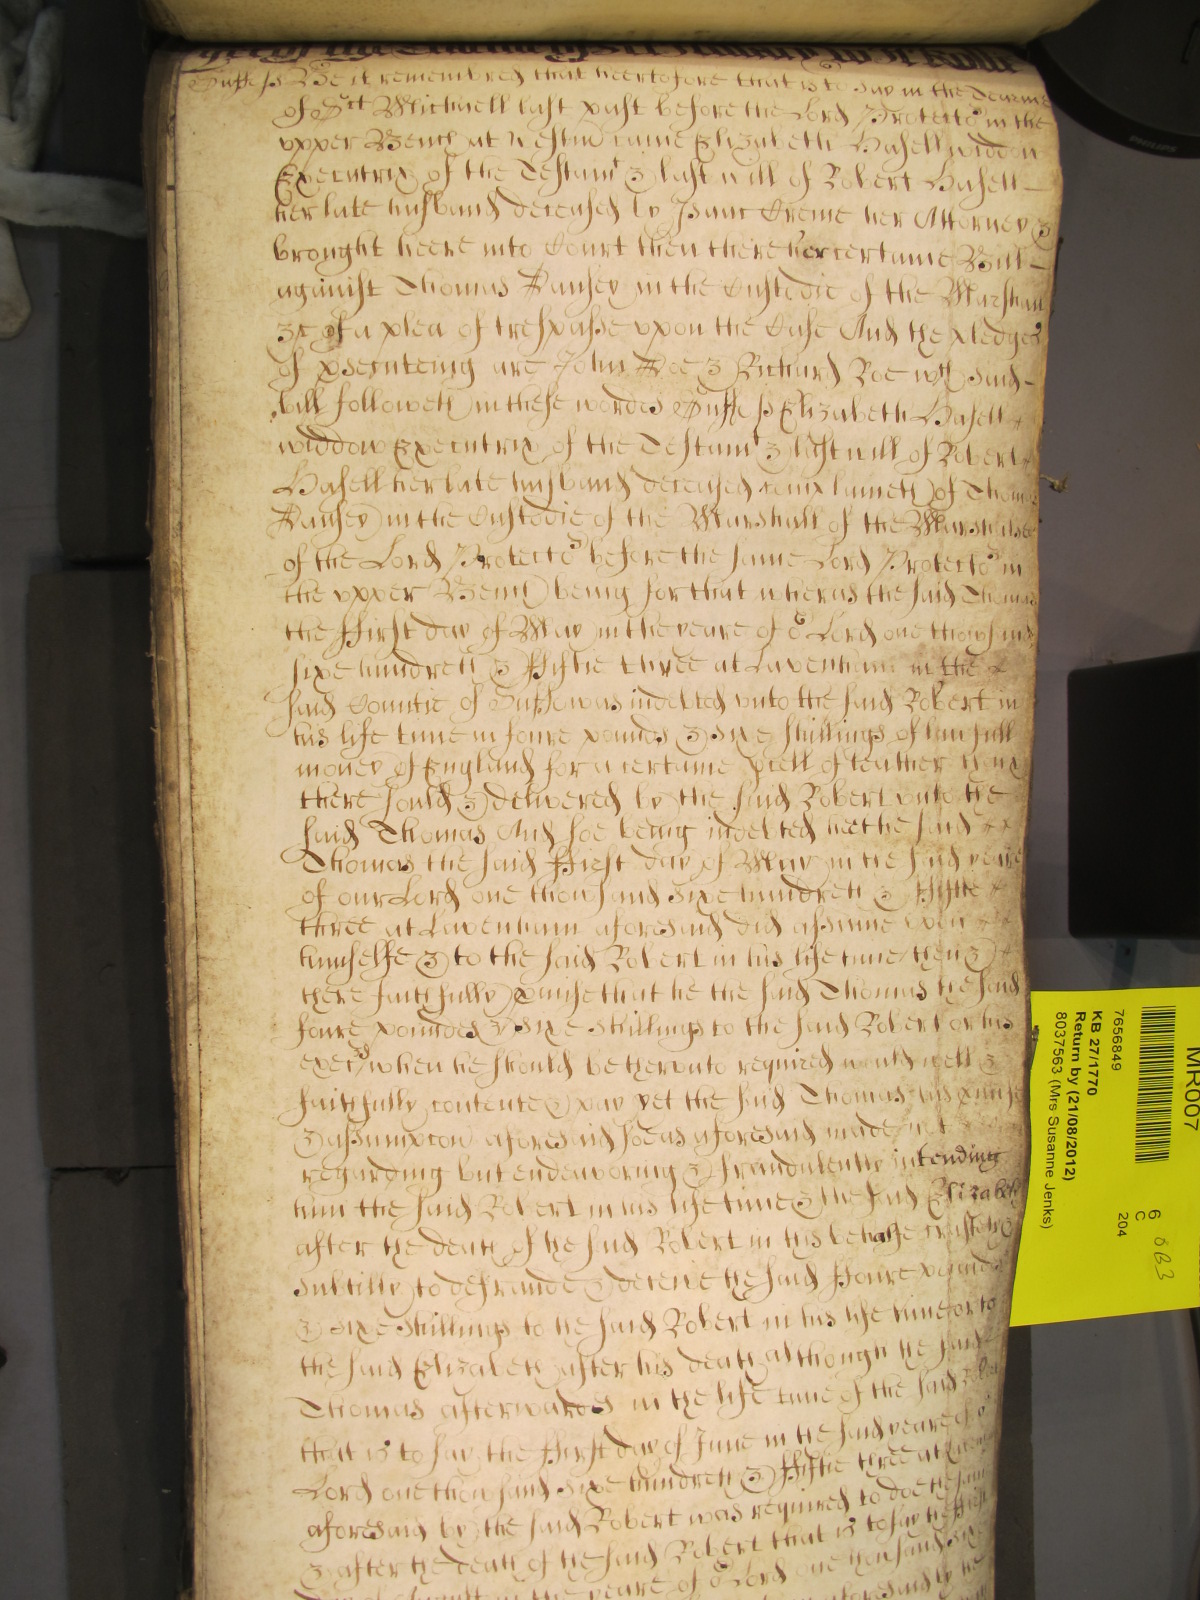 Suff ss Be it remembred that heertofore that is to say in the Tearme
of Sct Michaell last past before the Lord Protector in the
upper Bench at Westm came Elizabeth Hasell widdow
Executrix of the Testamt & last will of Robert Hasell
her late husband deceased by Isaac Creme her Attorney &
brought heere into Court then there her certaine Bill
against Thomas Dansey in the Custodie of the Marshall
&c of a plea of trespasse uppon the Case And the pledges
of prsecuteing are John Doe & Richard Roe wch said
bill followeth in these wordes Suff ss Elizabeth Hasell
widdow Executrix of the Testamt & last will of Robert
Hasell her late husband deceased complaineth of Thomas
Dansey in the Custodie of the Marshall of the Marshalsee
of the Lord Protector before the same Lord Protector in
the upper Bench being for that wheras the said Thomas
the ffirst day of May in the yeare of or Lord one thousand
sixe hundreth & ffiftie three at Lavenham in the
said Countie of Suff was indebted unto the said Robert in
his life time in foure pounds & sixe shillings of lawfull
money of England for a certaine pcell of leather then &
there sould & delivered by the said Robert unto the
said Thomas And soe being indebted hee the said
Thomas the said ffirst day of May in the said yeare
of our Lord one thousand sixe hundreth & ffiftie
three at Lavenham aforesaid did assume upon
himselfe & to the said Robert in his life time then &
there faithfully pmise that he the said Thomas the said
foure poundes & sixe shillings to the said Robert or his
execrs when he should be therunto required would well &
faithfully contente & pay yet the said Thomas his pmise
& assumpcon aforesaid soe as aforesaid made not
regarding but endeavoring & fraudulently intending
him the said Robert in his life time & the said Elizabeth
after the death of the said Robert in this behalfe craftely &
subtilly to defraude & deceive the said ffoure pounds
& sixe shillings to the said Robert in his life time or to
the said Elizabeth after his death although the said
Thomas afterwardes in the life time of the said Robert
that is to say the ffirst day of June in the said yeare of or
Lord one thousand sixe hundreth & ffiftie three at
aforesaid by the said Robert was required to doe the same
& after the death of the said Robert that is to say the ffirst
day of August in the yeare of or Lord one thousand sixe
aforesaid by the
PHILIPS
MR007
7656849
KB 27/1770
Return by (21/08/2012)
8037563 (Mrs Susanne Jenks)
6
C
204